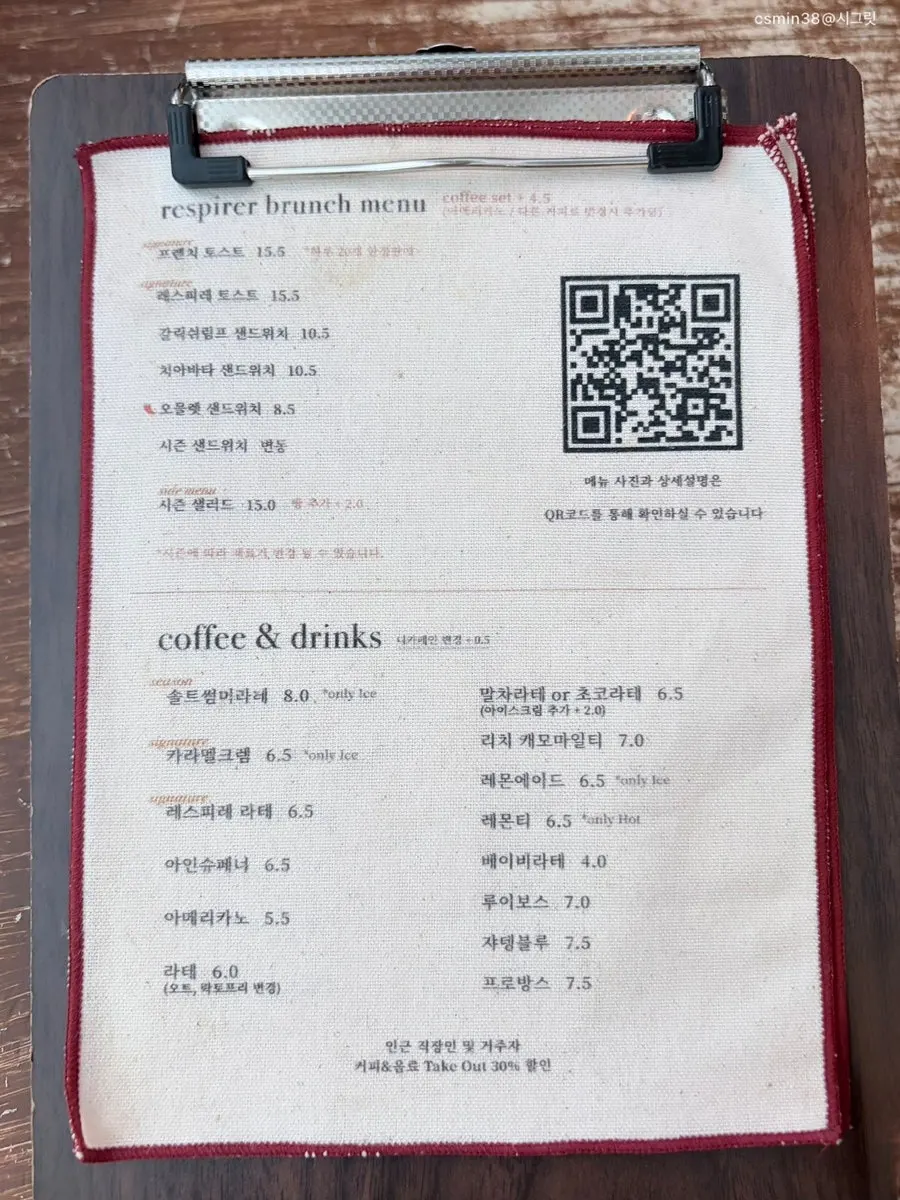 csmin38@시그릿
respirer brunch menu
coffee set + 4.5
(아메리카노 / 다른 커피로 변경시 추가있)
signature
프렌치 토스트 15.5 *하루 20개 한정판매
signature
레스피레 토스트 15.5
갈릭쉬림프 샌드위치 10.5
치아바타 샌드위치 10.5
오믈렛 샌드위치 8.5
시즌 샌드위치 변동
side menu
시즌 샐러드 15.0 빵 추가 + 2.0
*시즌에 따라 재료가 변경 될 수 있습니다.
메뉴 사진과 상세설명은
QR코드를 통해 확인하실 수 있습니다
coffee & drinks 디카페인 변경 + 0.5
season
솔트썸머라떼 8.0 *only Ice
signature
카라멜크렘 6.5 *only Ice
signature
레스피레 라떼 6.5
아인슈페너 6.5
아메리카노 5.5
라떼 6.0
(오트, 락토프리 변경)
말차라떼 or 초코라떼 6.5
(아이스크림 추가 + 2.0)
리치 캐모마일티 7.0
레몬에이드 6.5 *only Ice
레몬티 6.5 *only Hot
베이비라떼 4.0
루이보스 7.0
쟈뎅블루 7.5
프로방스 7.5
인근 직장인 및 거주자
커피&음료 Take Out 30% 할인